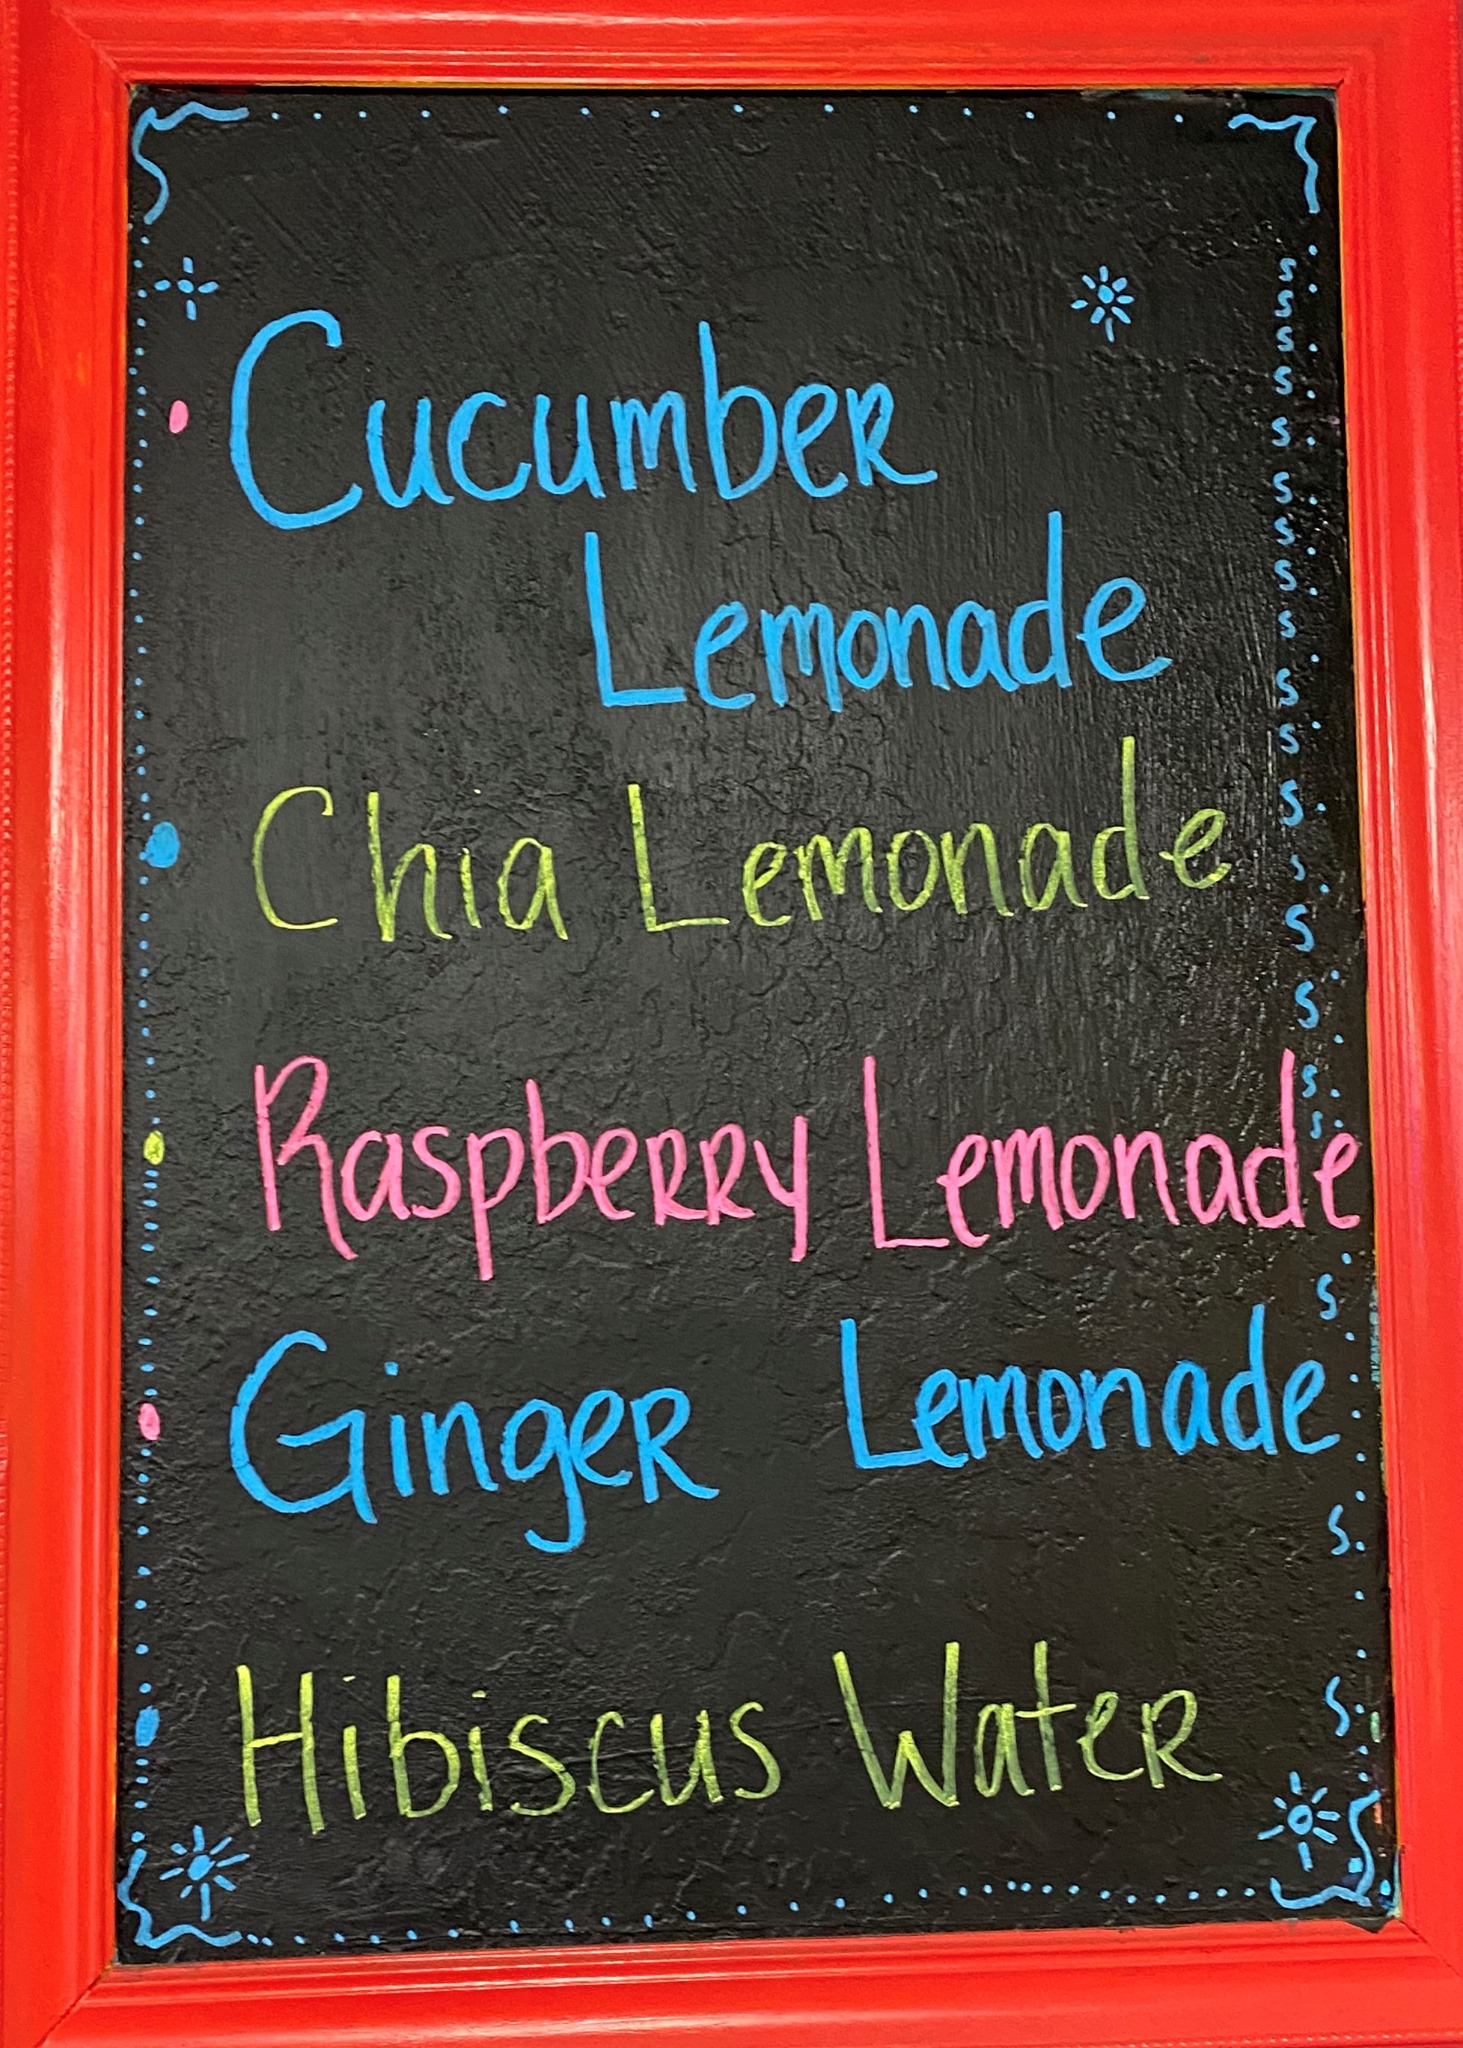 Cucumber
Lemonade
Chia Lemonade
Raspberry Lemonade
Ginger Lemonade
Hibiscus Water